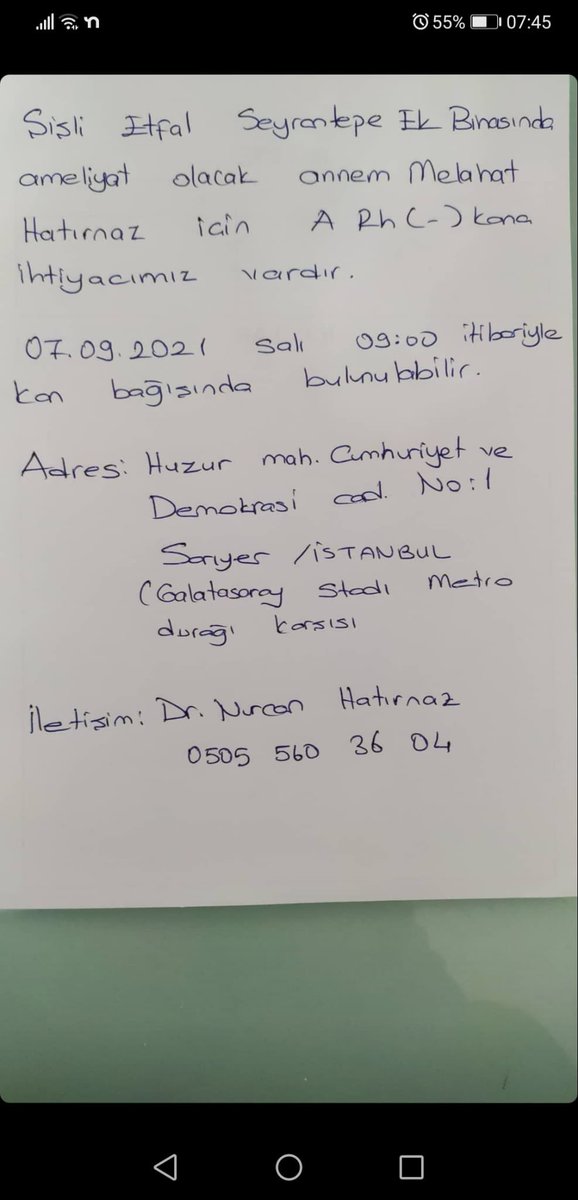 55% 07:45
Şişli Etfal Seyrantepe Ek Binasında
ameliyat olacak annem Melahat
Hatırnaz için A Rh (-) kana
ihtiyacımız vardır.
07.09.2021 Salı 09:00 itibariyle
kan bağışında bulunulabilir.
Adres: Huzur mah. Cumhuriyet ve
Demokrasi cad. No:1
Sarıyer /İSTANBUL
(Galatasaray Stadı Metro
durağı karşısı
İletişim: Dr. Nurcan Hatırnaz
0505 560 36 04